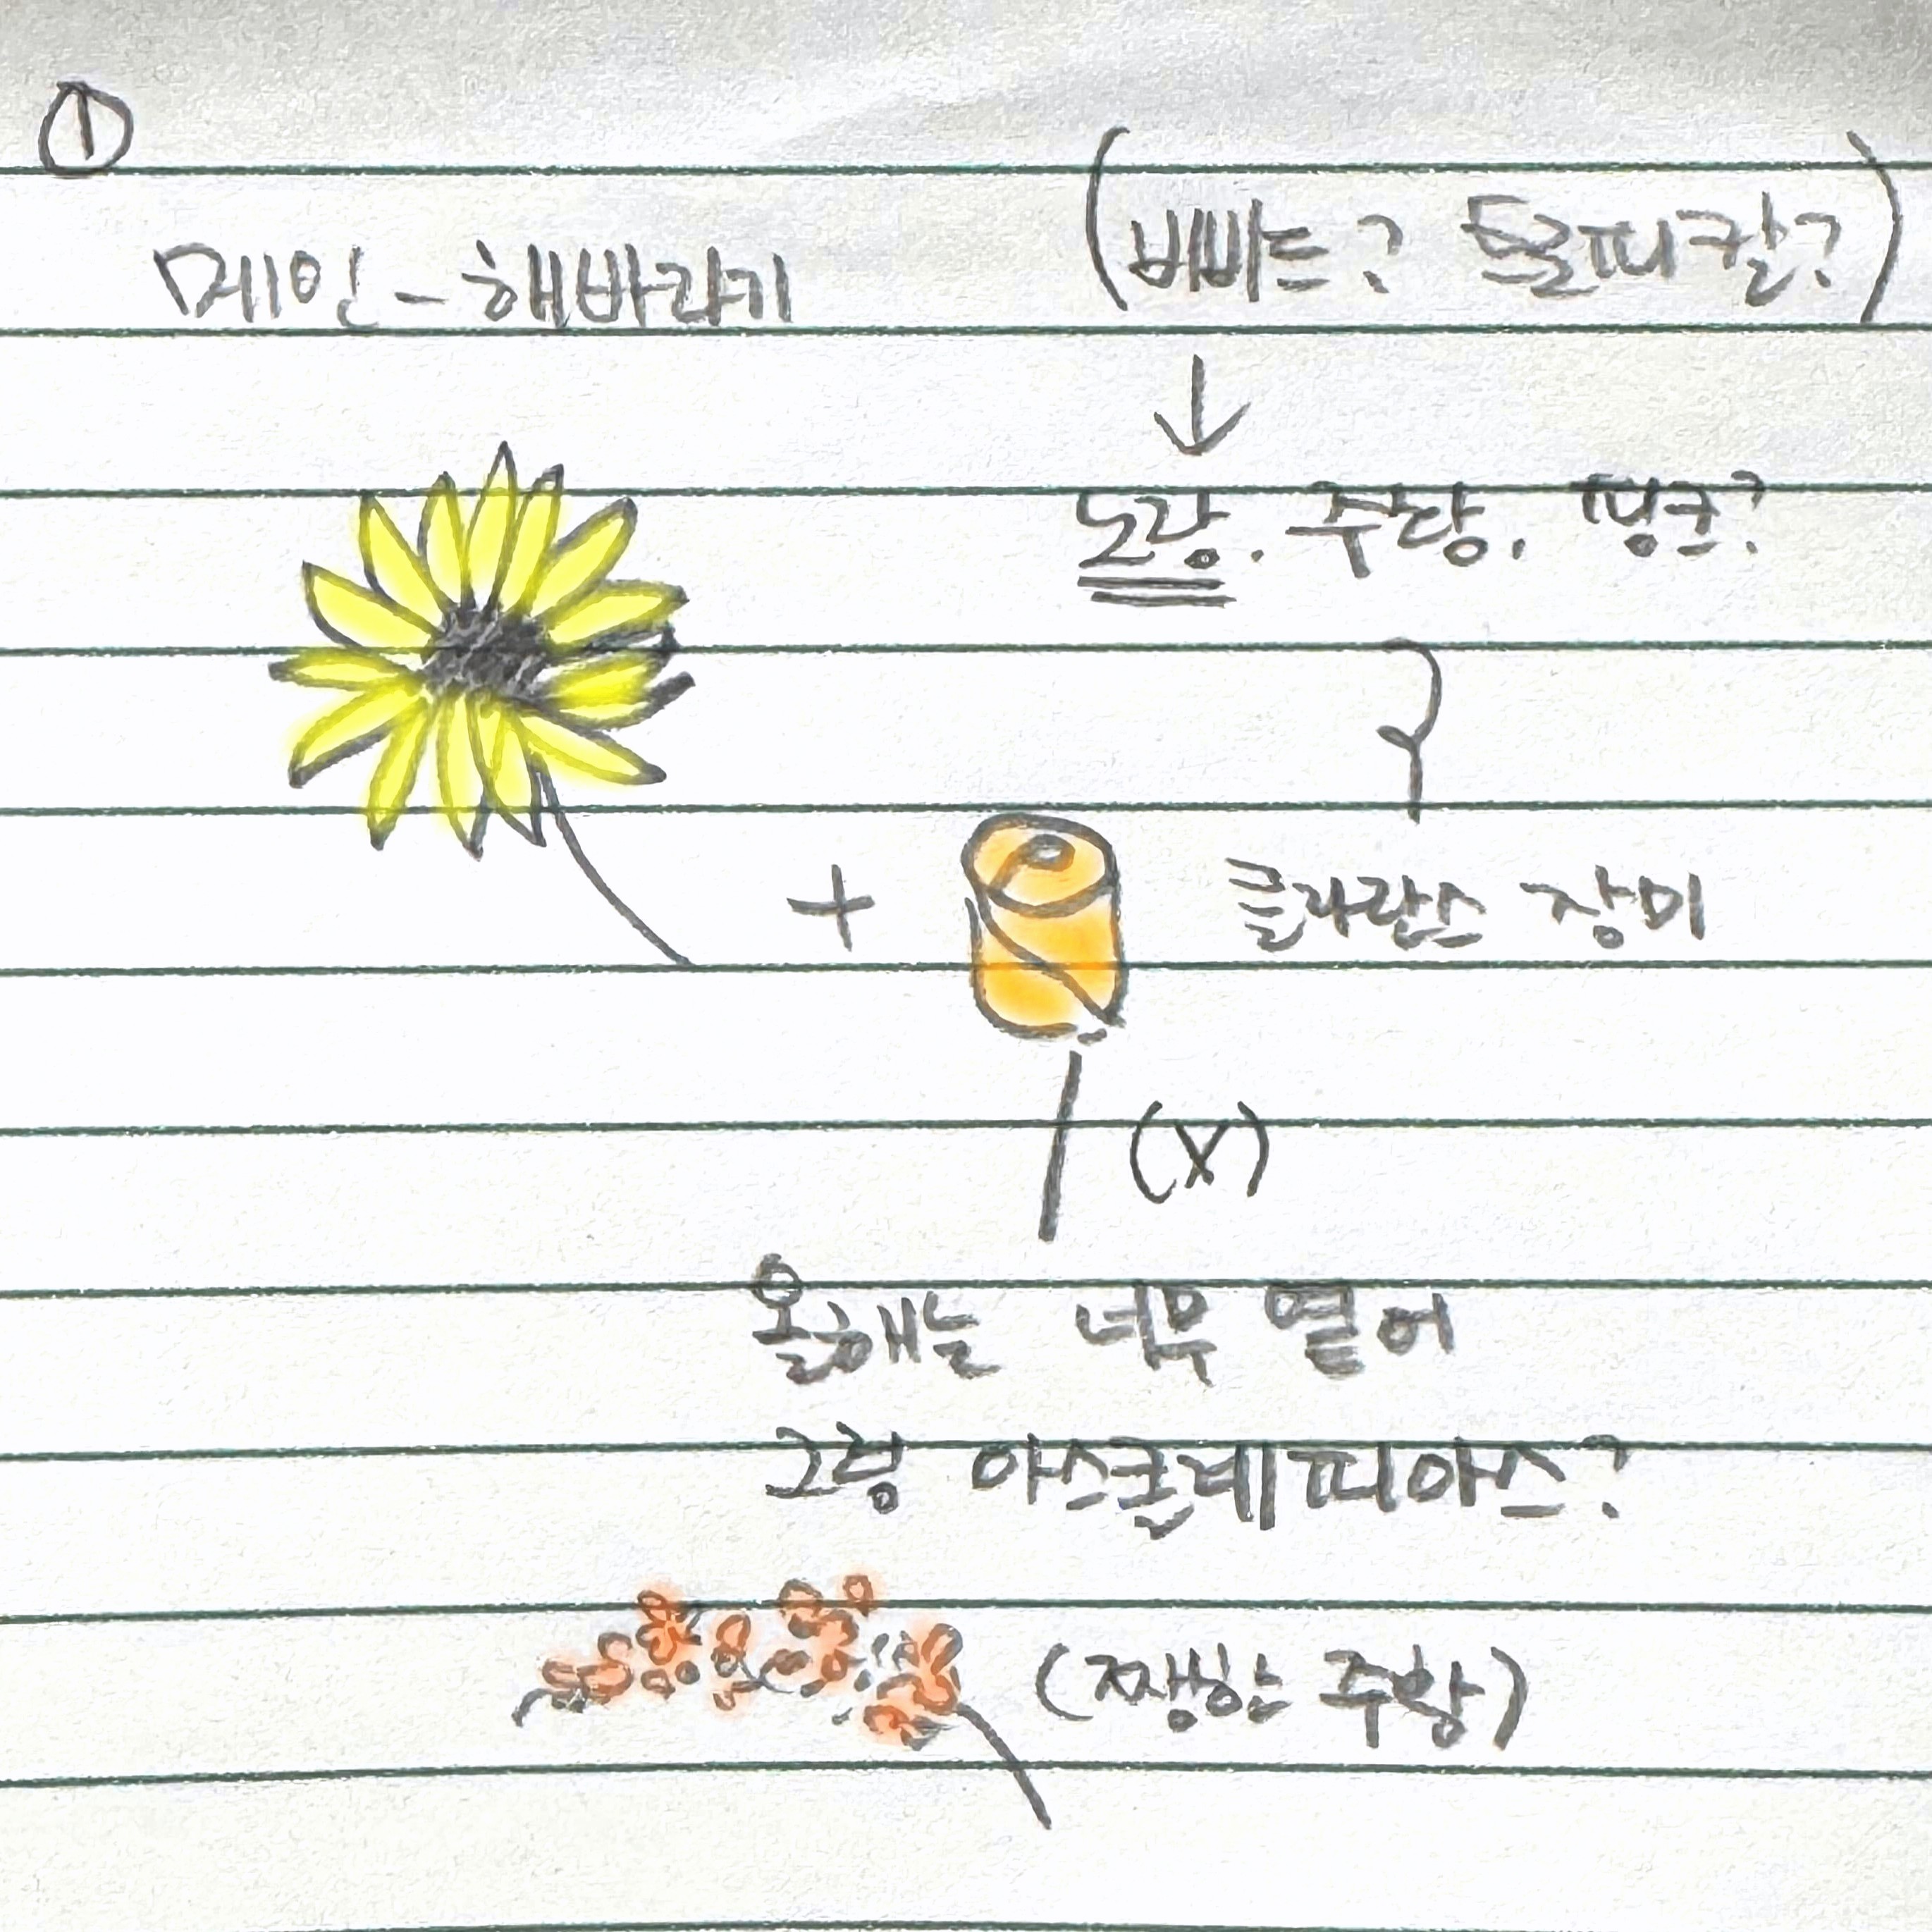 ①
메인 - 해바라기
(비비드? 트로피칼?)
↓
노랑. 주황. 핑크?
+ 클라란스 장미
(X)
올해는 너무 옅어
그럼 아스클레피아스?
(쨍한 주황)